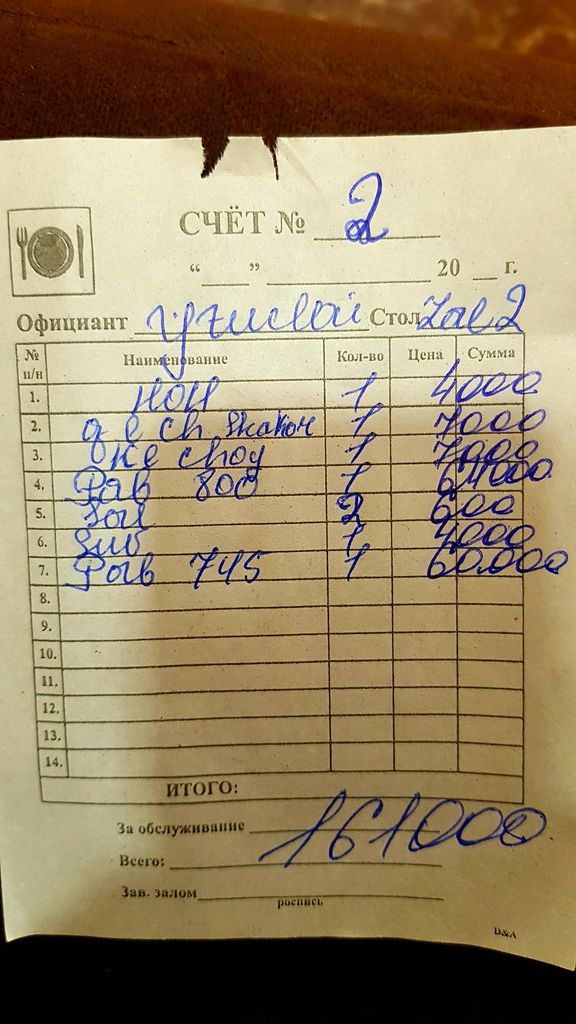 СЧЁТ № 2
“ ” 20 г.
Официант Стол Zal 2
№ п/п Наименование Кол-во Цена Сумма
1. Нон 1 4000
2. 1 7000
3. 1 7000
4. 800 1 64000
5. 2 600
6. 1 4000
7. 745 1 60.000
8.
9.
10.
11.
12.
13.
14.
ИТОГО:
За обслуживание
161000
Всего:
Зав. залом
роспись
D&A